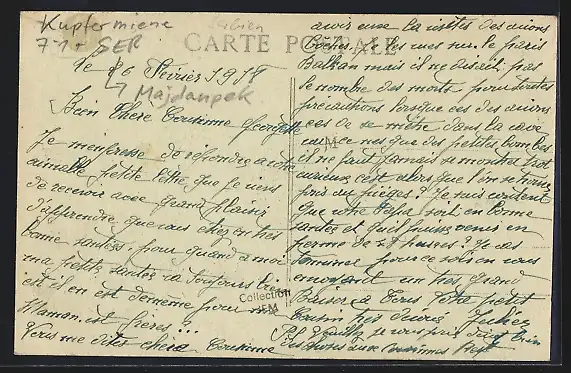 Kupfermiene
71 SER
CARTE POSTALE
le 26 Février 1918
↳ Majdanpek
Bien Chère Cousine Georgette
Je m'empresse de répondre a votre
aimable petite lettre que je viens
de recevoir avec grand plaisir
d'apprendre que vous chez en très
bonne santées. pour quand a moi
ma petite santée va toujours bien
est il en est de même pour
Maman. est frères ?..
Vous me dites chère Cousine
avoir eue la visites des avions
Boches. Je les mes sur le paris
Balkan mais il ne disait pas
le nombre des morts. pour toutes
précautions lorsque ces des avions
ces de se mêtre dans la cave
ou ce nes que des petites bombes
il ne faut jamais se montré trop
curieux c'est alors que l'on se trouve
pris au pièges? Je suis content
que votre Papa soit en bonne
santes et qu'il puisse venir en
perme de 28 heures? Je vais
terminer pour ce soir en vous
envoyant un très grand
Baiser a Tous Votre petit
Cousin très Julien
Collection
JEM